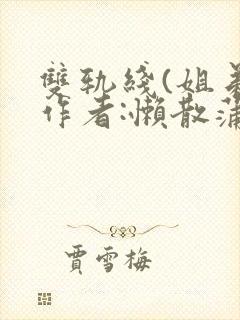 雙軌綫(姐弟
作者:懶散蒲
賈雪梅